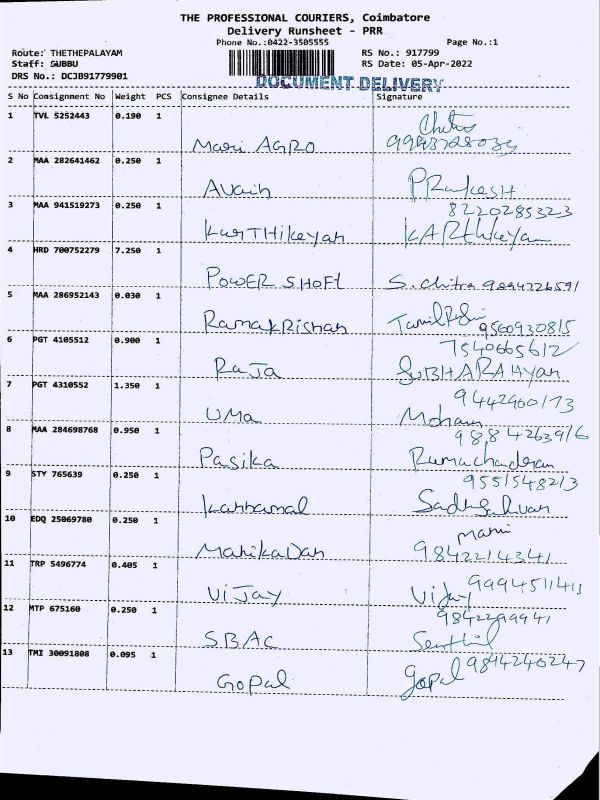 THE PROFESSIONAL COURIERS, Coimbatore
Delivery Runsheet - PRR
Phone No.:0422-3505555 Page No.:1
Route: THETHEPALAYAM RS No.: 917799
Staff: SUBBU RS Date: 05-Apr-2022
DRS No.: DCJB91779901 DOCUMENT DELIVERY
S No Consignment No Weight PCS Consignee Details Signature
1 TVL 5252443 0.190 1
Mari AGRO
2 MAA 282641462 0.250 1
PRakesH
3 MAA 941519273 0.250 1 8220285323
KarTHikeyan KARthikeyan
4 HRD 700752279 7.250 1
POWER SHOFt S. chitra 9894226591
5 MAA 286952143 0.030 1
RamakRishan 9560930815
6 PGT 4105512 0.900 1 7540665612
RaJa SUBHARAHYan
7 PGT 4310552 1.350 1 9442960173
UMa Mohan
8 MAA 284698768 0.950 1 9884263916
Pasika Ramachandran
9 STY 765639 0.250 1 9551548213
Kannamal
10 EDQ 25069780 0.250 1 mani
ManikaDan 9842214341
11 TRP 5496774 0.405 1 9994511411
ViJay Vijay
12 MTP 675160 0.250 1 9842299941
SBAC Senthil
13 TMI 30091808 0.095 1 9894240247
Gopal gopal